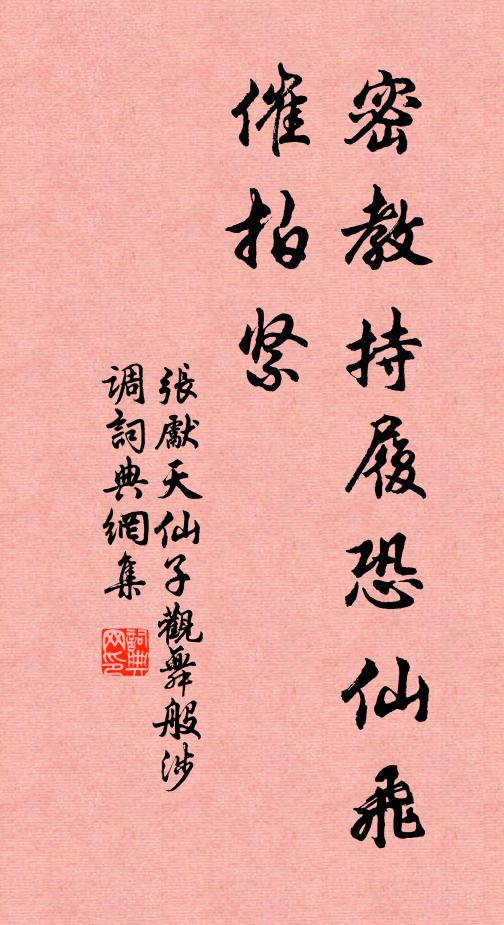 密教持履恐仙飛
催拍紧
張獻天仙子觀舞般涉
调詞典網集
詞典
网印